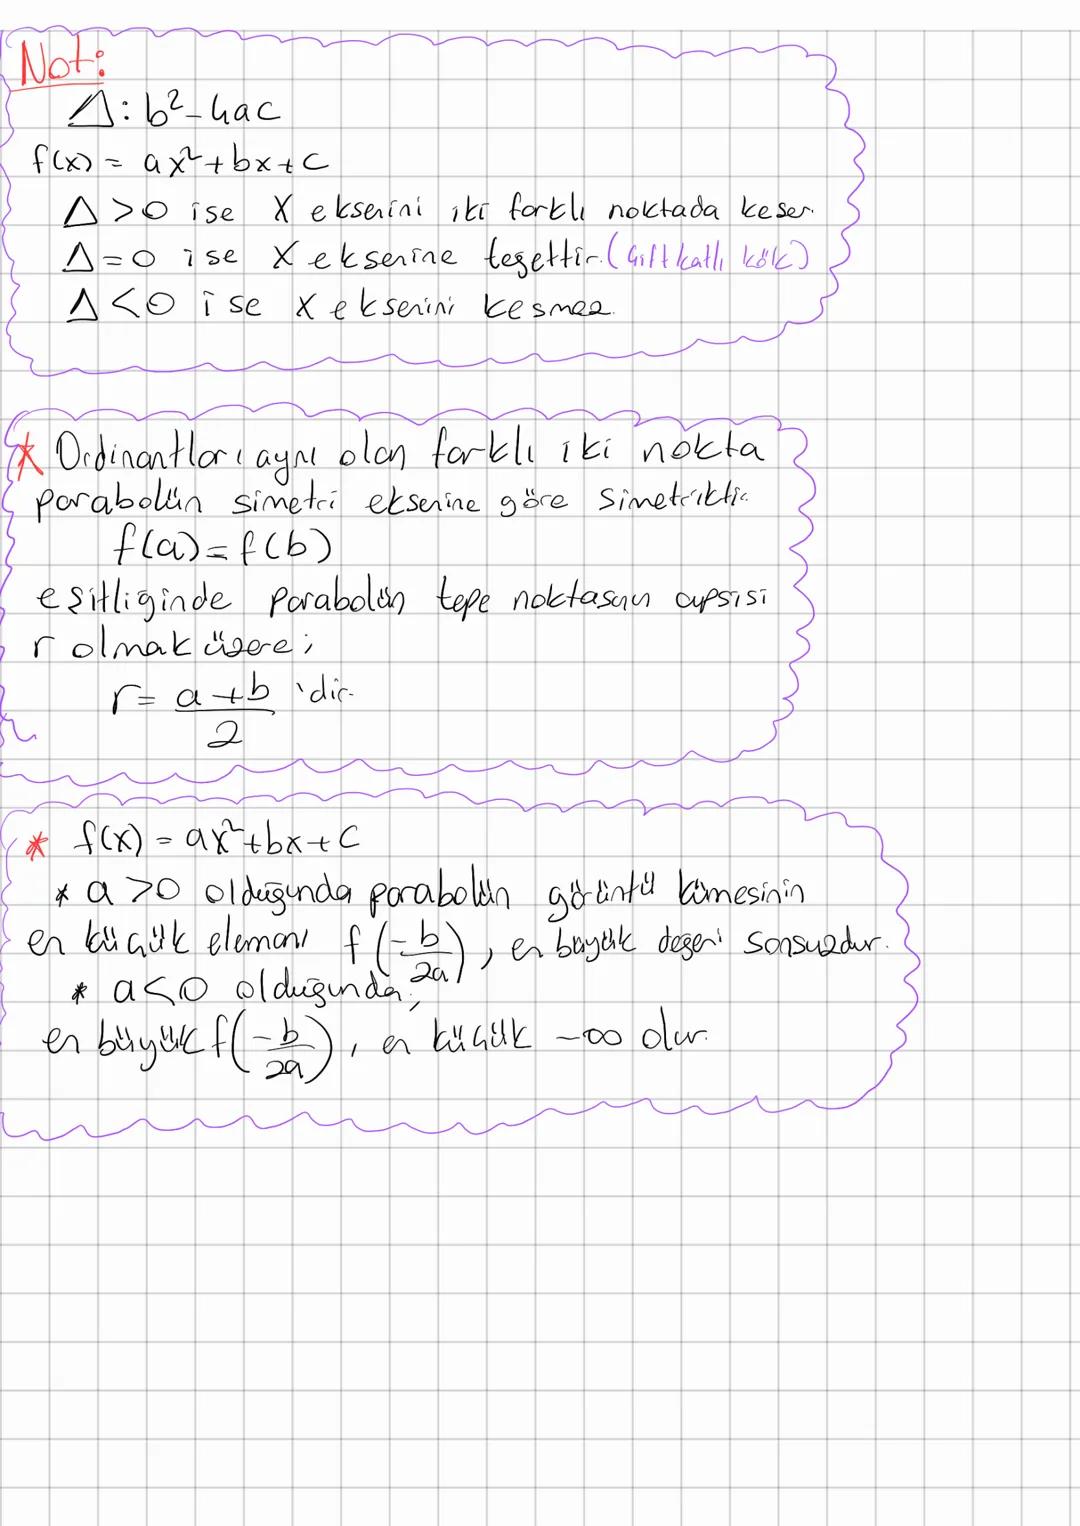 Not:
Δ: b²-4ac
f(x) = ax²+bx+c
Δ>0 ise X eksenini iki farklı noktada keser.
Δ=0 ise X eksenine teğettir. (Çift katlı kök)
Δ<0 ise X eksenini kesmez.
* Ordinantları aynı olan farklı iki nokta
parabolün simetri eksenine göre simetriktir.
f(a)=f(b)
eşitliğinde parabolün tepe noktasının apsisi
r olmak üzere;
r= a+b 'dir.
2
* f(x) = ax²+bx+c
* a>0 olduğunda parabolün görüntü kümesinin
en küçük elemanı f(-b/2a), en büyük değeri sonsuzdur.
* a<0 olduğunda;
en büyük f(-b/2a), en küçük -∞ olur.